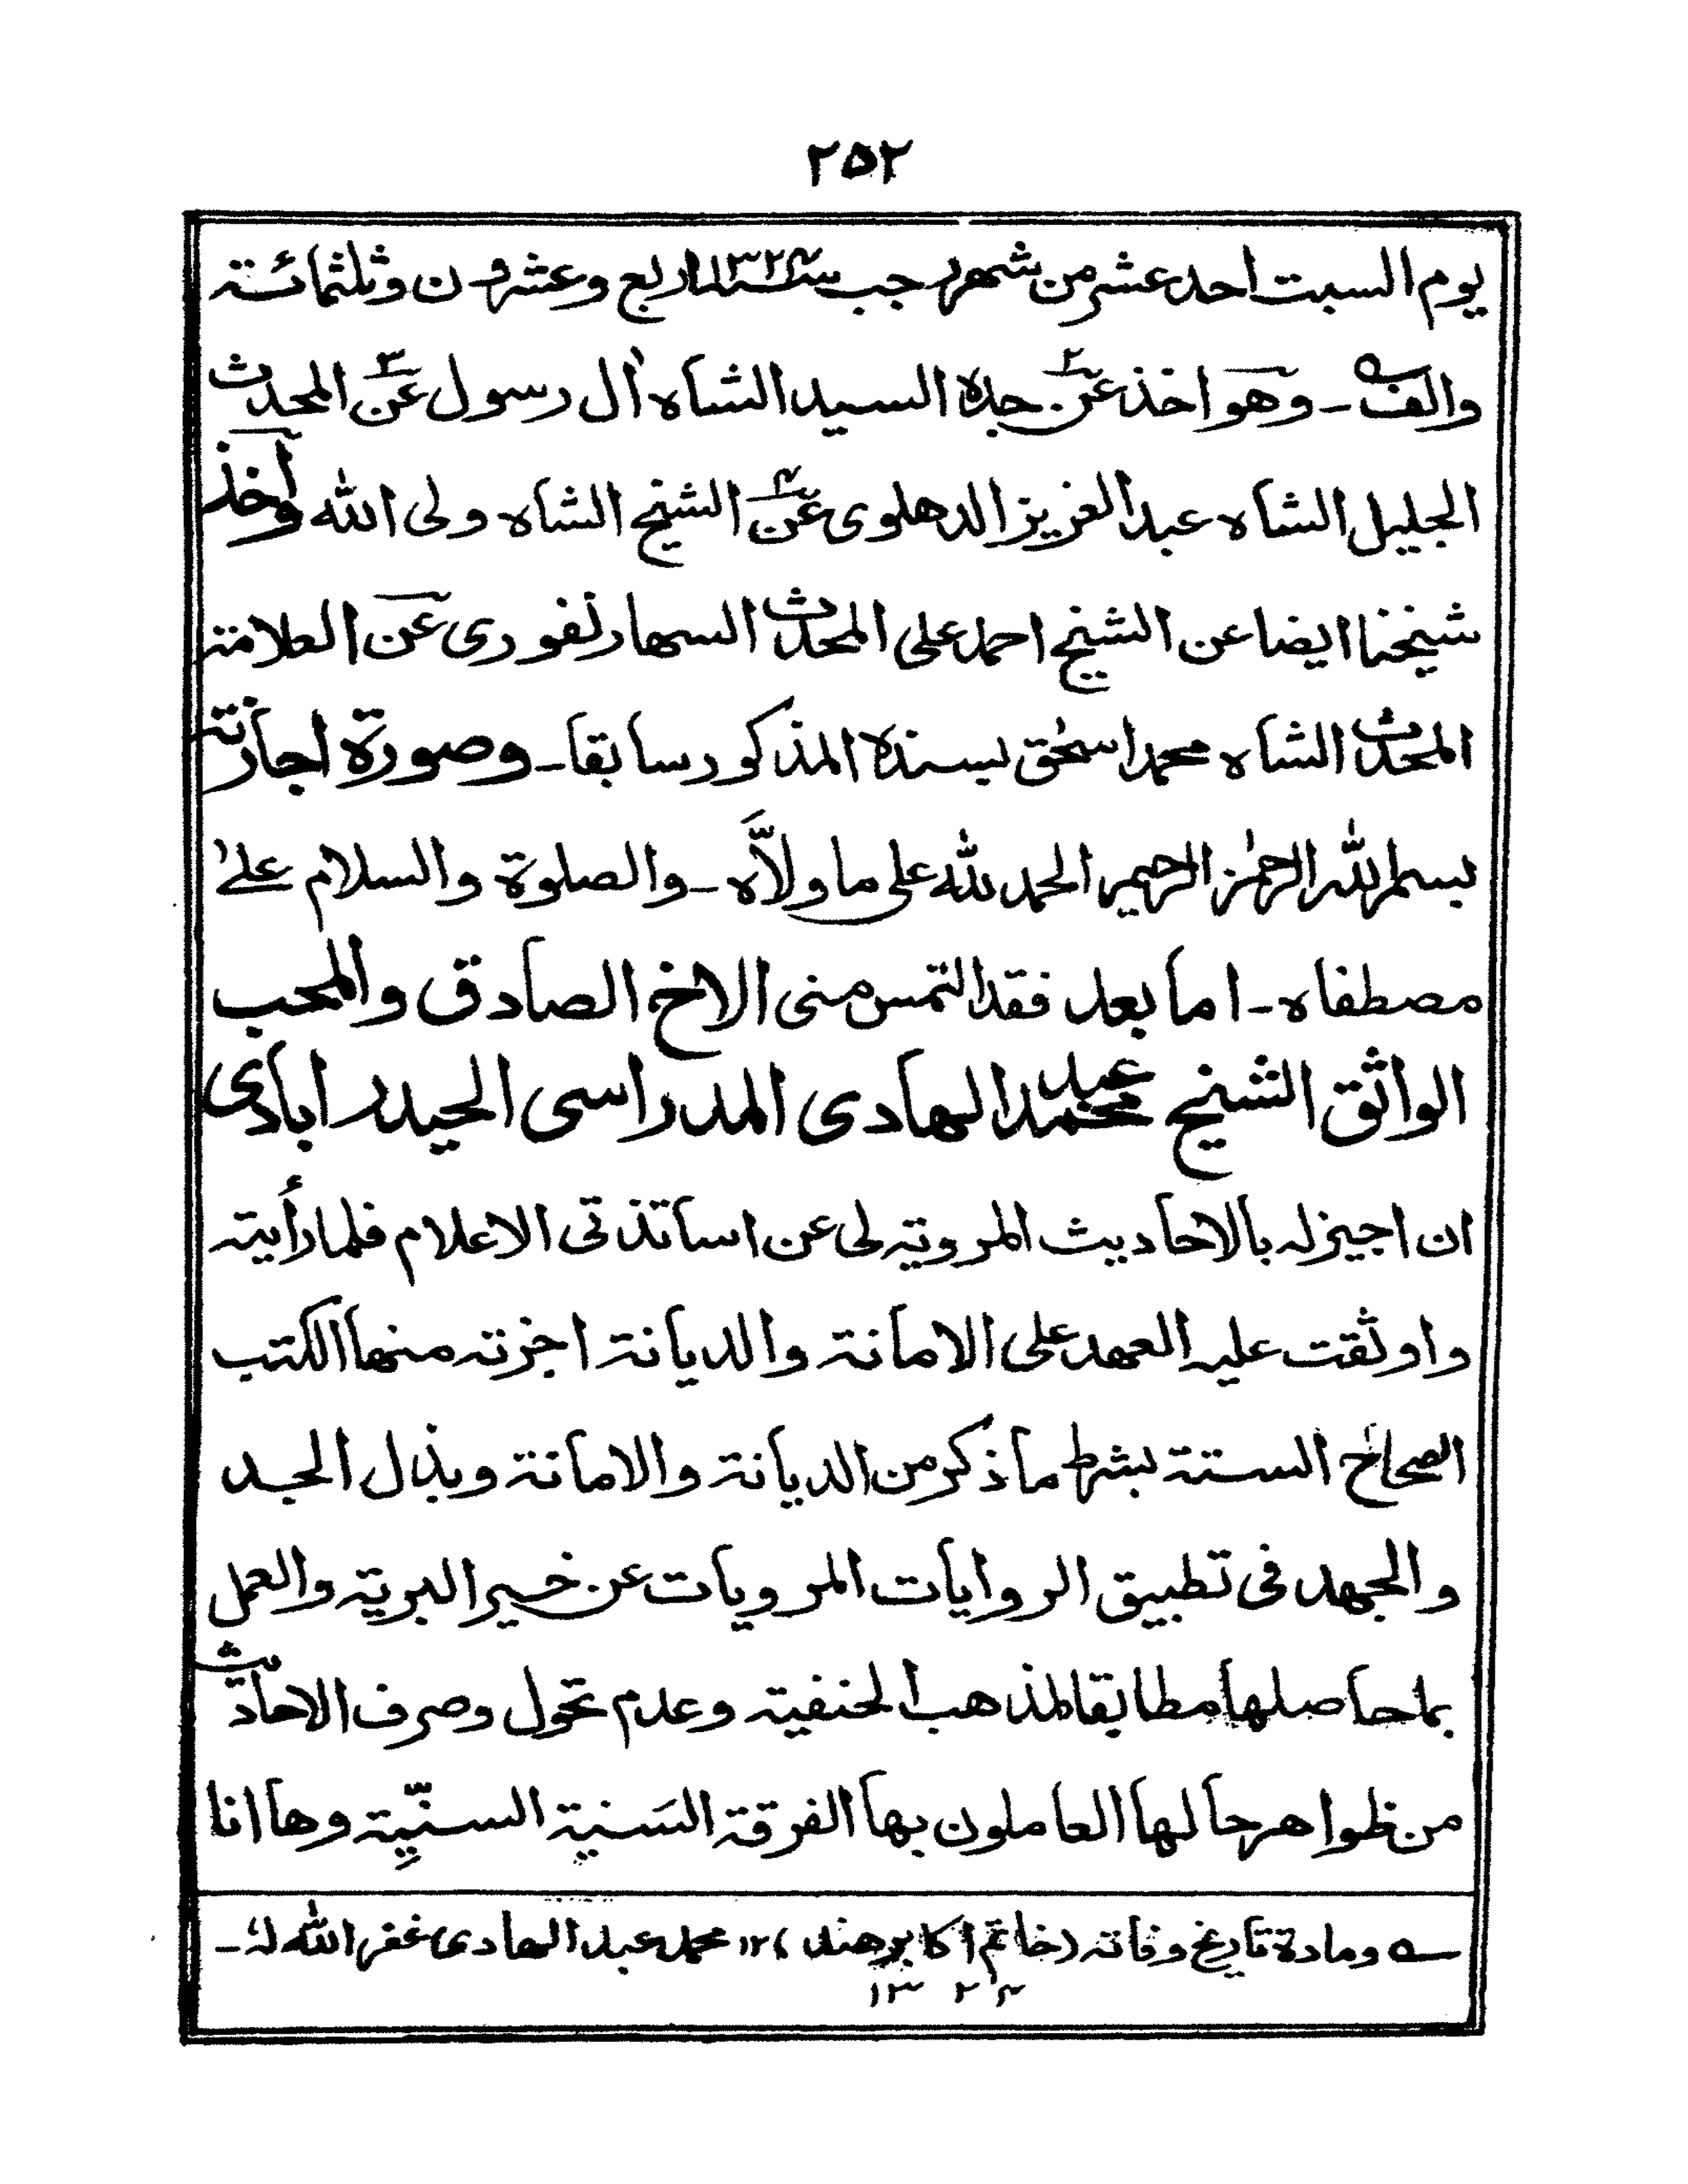 ٢٥٢
يوم السبت احد عشر من شهر رجب سنة ١٣٢٤ اربع وعشرون وثلثمائة
والف ـ وهو اخذ عن جده السيد الشاه اٰل رسول عن المحدث
الجليل الشاه عبد العزيز الدهلوى عن الشيخ الشاه ولى الله واخذ
شيخنا ايضا عن الشيخ احمد على المحدث السهارنفورى عن العلامة
المحدث الشاه محمد اسحٰق بسنده المذكور سابقا ـ وصورة اجازته
بسم الله الرحمٰن الرحيم الحمد لله على ما ولاَّه ـ والصلوة والسلام علىٰ
مصطفاه ـ اما بعد فقد التمس منى الاخ الصادق والمحب
الواثق الشيخ محمد عبد الهادى المدراسى الحيدراٰبادى
ان اجيز له بالاحاديث المروية لى عن اساتذتى الاعلام فلما رأيته
واوثقت عليه العهد على الامانة والديانة اجزته منها الكتب
الصحاح الستة بشرط ما ذكر من الديانة والامانة وبذل الجد
والجهد فى تطبيق الروايات المرويات عن خير البرية والعمل
بما حاصلها مطابقا لمذهب الحنفية وعدم تحول وصرف الاحاديث
من ظواهر حالها العاملون بها الفرقة السَنية السنّيِة وها انا
ـه ومادة تاريخ وفاته (خاتم اكابر هند) ١٢ محمد عبد الهادى غفر الله لهٗ ـ
١٣ ٢ ٤